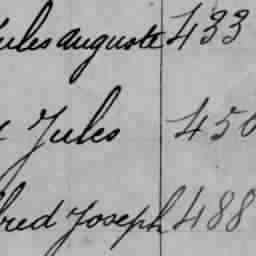 Jules auguste 433
Jules 450
fred Joseph 488